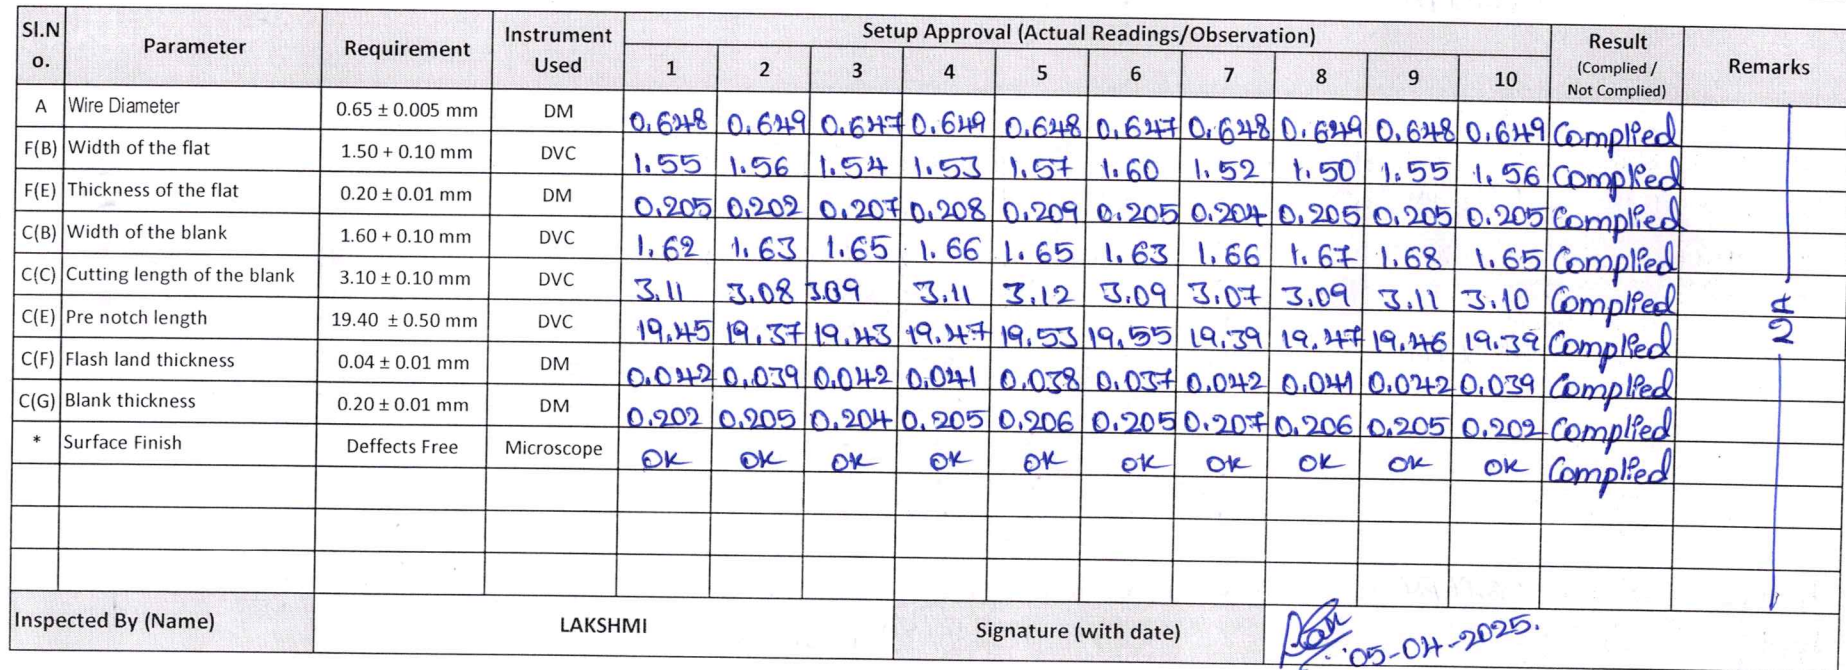 Sl.No. Parameter Requirement Instrument Used Setup Approval (Actual Readings/Observation) Result (Complied / Not Complied) Remarks
1 2 3 4 5 6 7 8 9 10
A Wire Diameter 0.65 ± 0.005 mm DM 0.648 0.649 0.647 0.649 0.648 0.647 0.648 0.649 0.648 0.649 Complied
F(B) Width of the flat 1.50 + 0.10 mm DVC 1.55 1.56 1.54 1.53 1.57 1.60 1.52 1.50 1.55 1.56 Complied
F(E) Thickness of the flat 0.20 ± 0.01 mm DM 0.205 0.202 0.207 0.208 0.209 0.205 0.204 0.205 0.205 0.205 Complied
C(B) Width of the blank 1.60 + 0.10 mm DVC 1.62 1.63 1.65 1.66 1.65 1.63 1.66 1.67 1.68 1.65 Complied
C(C) Cutting length of the blank 3.10 ± 0.10 mm DVC 3.11 3.08 3.09 3.11 3.12 3.09 3.07 3.09 3.11 3.10 Complied
C(E) Pre notch length 19.40 ± 0.50 mm DVC 19.45 19.37 19.43 19.47 19.53 19.55 19.39 19.47 19.46 19.39 Complied
C(F) Flash land thickness 0.04 ± 0.01 mm DM 0.042 0.039 0.042 0.041 0.038 0.037 0.042 0.041 0.042 0.039 Complied
C(G) Blank thickness 0.20 ± 0.01 mm DM 0.202 0.205 0.204 0.205 0.206 0.205 0.207 0.206 0.205 0.202 Complied
* Surface Finish Deffects Free Microscope OK OK OK OK OK OK OK OK OK OK Complied
Inspected By (Name) LAKSHMI Signature (with date) 05-04-2025.